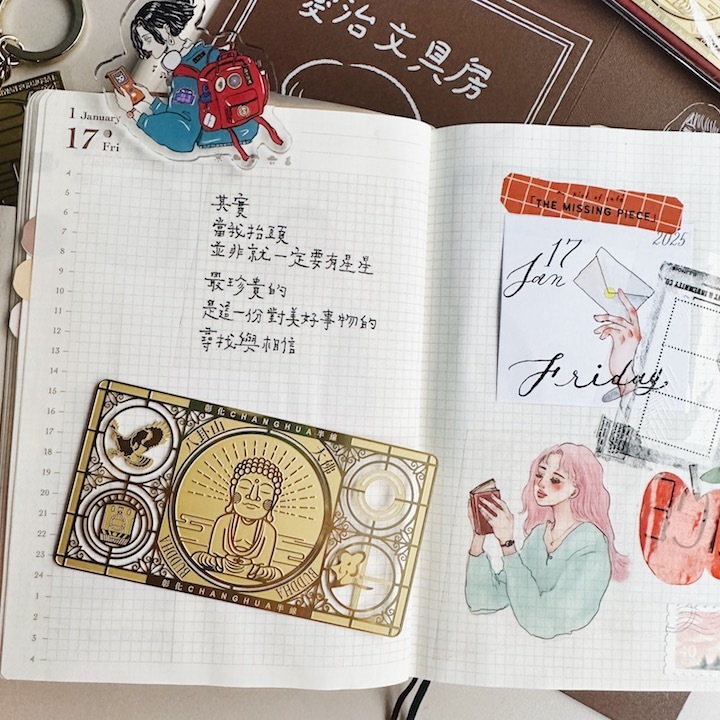 愛治文具房
1 January
17
Fri
4
5
6
7
8
9
10
11
12
13
14
15
16
17
18
19
20
21
22
23
24
1
2
3
4
其實
當我抬頭
並非就一定要有星星
最珍貴的
是這一份對美好事物的
尋找與相信
彰化CHANGHUA半線
八卦山 大佛
BUDDHA
彰化CHANGHUA半線
「THE MISSING PIECE」
2025
17
Jan
Friday